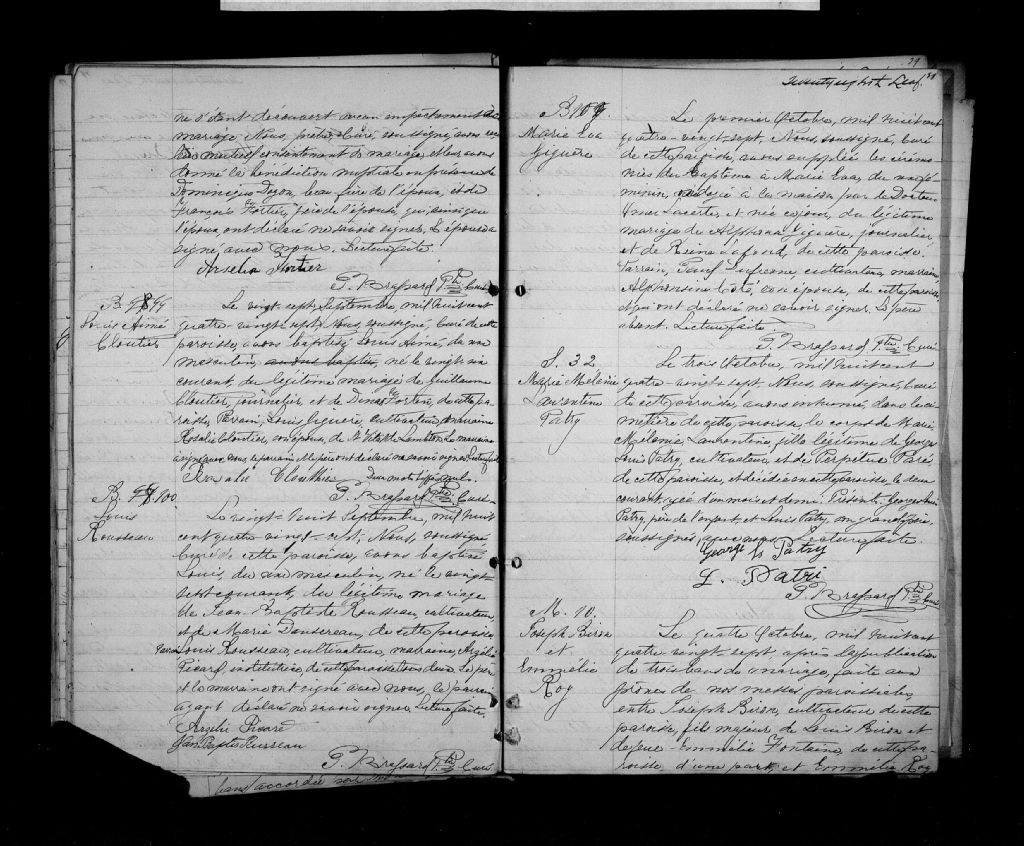 ne s'étant découvert aucun empêchement de
mariage, Nous, prêtre, Curé, soussigné, avons reçu
leur mutuel consentement de mariage, et leur avons
donné la bénédiction nuptiale en présence de
Dominique Doyon, beau-frère de l'époux, et de
François Fortier, père de l'épouse, qui, ainsi que
l'époux, ont déclaré ne savoir signer. L'épouse a
signé avec nous. Lecture faite.
Arselia Fortier
P. Brassard Ptre Curé
B. 99
Louis Aimé
Cloutier
Le vingt-sept Septembre, mil huit cent
quatre-vingt-sept, Nous, soussigné, Curé de cette
paroisse, avons baptisé Louis Aimé, du sexe
masculin, avons baptisé, né le vingt-six
courant, du légitime mariage de Guillaume
Cloutier, journalier et de Fortin, de cette pa-
roisse, Parrain, Louis Giguère, cultivateur, marraine
Rosalie Cloutier, son épouse, de St Lambton. La marraine
a signé avec nous. le parrain et le père ont déclaré ne savoir signer. Lecture faite
Rosalie Clouthier Deux mots biffés nuls.
P. Brassard Ptre Curé
B. 100
Louis
Rousseau
Le vingt-huit Septembre, mil huit
cent quatre-vingt-sept, Nous, soussigné
Curé de cette paroisse, avons baptisé
Louis, du sexe masculin, né le vingt-
sept courant, du légitime mariage
de Jean-Baptiste Rousseau, cultivateur,
et de Marie Dansereau, de cette paroisse,
Parrain Louis Rousseau, cultivateur, marraine, Azélie
Picard, institutrice, de cette paroisse tous deux. Le père
et la marraine ont signé avec nous, le parrain
ayant déclaré ne savoir signer. Lecture faite.
Azélie Picard
Jean Baptis Rousseau
P. Brassard Ptre Curé
bans accordée
29
Twenty eighth Leaf.
B. 101
Marie Eva
Giguère
Le premier Octobre, mil huit cent
quatre-vingt-sept, Nous, soussigné, Curé
de cette paroisse, avons suppléé les cérémo-
nies du Baptême à Marie Eva, du sexe fé-
minin, ondoyée à la maison par le Docteur
Omer Lacerte, et née ce jour, du légitime
mariage de Alphonse Giguère, journalier
et de Reine Lafond, de cette paroisse.
Parrain, Paul Dufresne, cultivateur, marraine
Alphonsine Coté, son épouse, de cette paroisse
et qui ont déclaré ne savoir signer. Le père
absent. Lecture faite.
P. Brassard Ptre Curé
S. 32
Marie Mélanie
Laurentine
Patry
Le trois Octobre, mil huit cent
quatre-vingt-sept, Nous, soussigné, Curé
de cette paroisse, avons inhumé, dans le ci-
metière de cette paroisse, le corps de Marie
Mélanie Laurentine, fille légitime de George
Louis Patry, cultivateur, et de Perpétue Paré
de cette paroisse, et décédée en cette paroisse le deux
courant, agée d'un mois et demi. Présents George Louis
Patry, père de l'enfant, et Louis Patry, son grand-père,
soussignés avec nous. Lecture faite.
George Ls Patry
L. Patri
P. Brassard Ptre Curé
M. 10.
Joseph Biron
et
Emmélie
Roy
Le quatre Octobre, mil huit cent
quatre-vingt-sept, après la publication
de trois bans de mariage, faite aux
prônes de nos messes paroissiales,
entre Joseph Biron, cultivateur de cette
paroisse, fils majeur de Louis Biron et
de feue Emmélie Fontaine, de cette pa-
roisse, d'une part, et Emmélie Roy